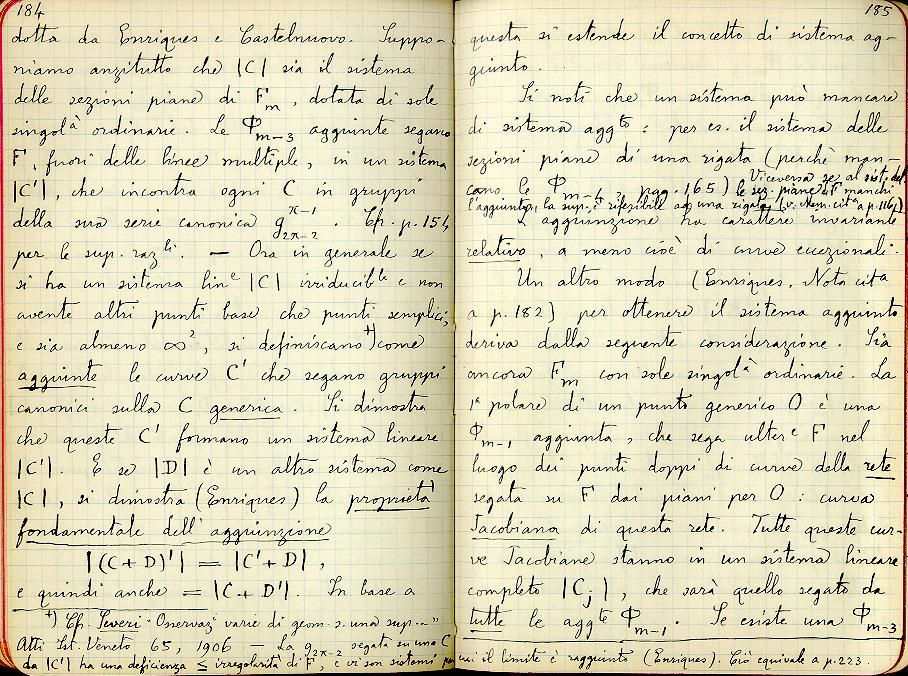 184
dotta da Enriques e Castelnuovo. Suppo-
niamo anzitutto che |C| sia il sistema
delle sezioni piane di F_m, dotata di sole
singol^à ordinarie. Le Φ_{m-3} aggiunte segano
F, fuori delle linee multiple, in un sistema
|C'|, che incontra ogni C in gruppi
della sua serie canonica g_{2π-2}^{π-1}. Cfr. p. 154,
per le sup. raz^li. — Ora in generale se
si ha un sistema lin^e |C| irriducib^le e non
avente altri punti base che punti semplici,
e sia almeno ∞², si definiscano +) come
aggiunte le curve C' che segano gruppi
canonici sulla C generica. Si dimostra
che queste C' formano un sistema lineare
|C'|. E se |D| è un altro sistema come
|C|, si dimostra (Enriques) la proprietà
fondamentale dell'aggiunzione
|(C+D)'| = |C'+D|,
e quindi anche = |C+D'|. In base a
+) Cfr. Severi "Osservaz^i varie di geom. s. una sup..."
Atti Ist. Veneto 65, 1906 — La g_{2π-2} segata su una C
da |C'| ha una deficienza ≤ irregolarità di F, e vi son sistemi per
185
questa si estende il concetto di sistema ag-
giunto.
Si noti che un sistema può mancare
di sistema agg^to: per es. il sistema delle
sezioni piane di una rigata (perchè man-
cano le Φ_{m-4}, pag. 165) Viceversa se al sist. del
le sez. piane di F manchi
l'aggiunto, la sup. è riferibile ad una rigata (v. Mem. cit^a a p. 116).
L'aggiunzione ha carattere invariante
relativo, a meno cioè di curve eccezionali.
Un altro modo (Enriques, Nota cit^a
a p. 182) per ottenere il sistema aggiunto
deriva dalla seguente considerazione. Sia
ancora F_m con sole singol^à ordinarie. La
1^a polare di un punto generico O è una
Φ_{m-1} aggiunta, che sega ulter^e F nel
luogo dei punti doppi di curve della rete
segata su F dai piani per O: curva
Jacobiana di questa rete. Tutte queste cur-
ve Jacobiane stanno in un sistema lineare
completo |C_j|, che sarà quello segato da
tutte le agg^te Φ_{m-1}. Se esiste una Φ_{m-3}
cui il limite è raggiunto (Enriques). Ciò equivale a p. 223.